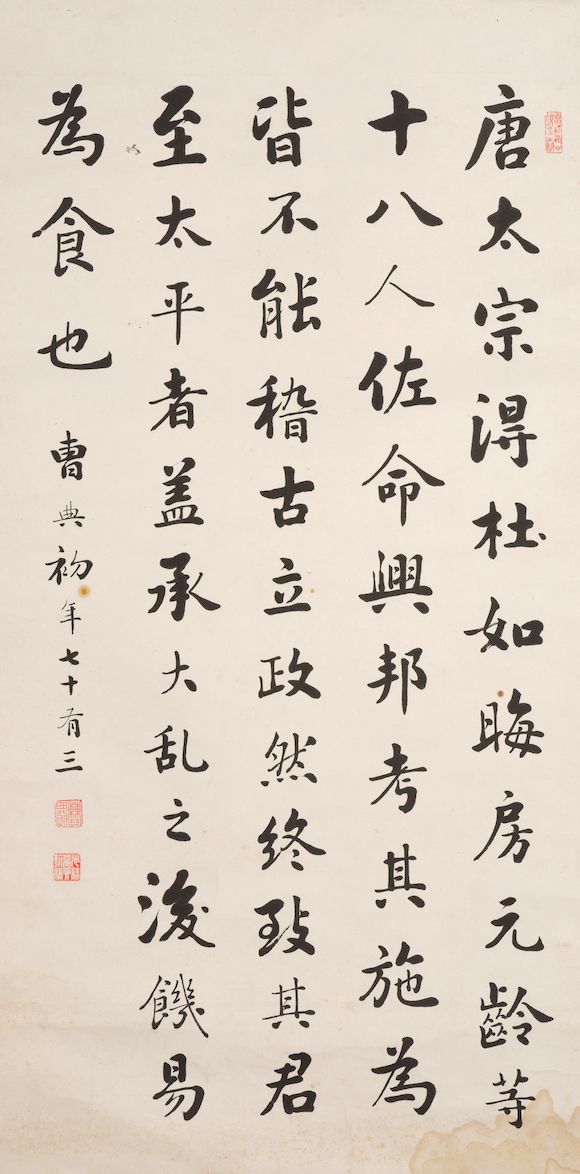 唐太宗得杜如晦房元齡等
十八人佐命興邦考其施為
皆不能稽古立政然終致其君
至太平者盖承大乱之後饑易
為食也
曹典初年七十有三